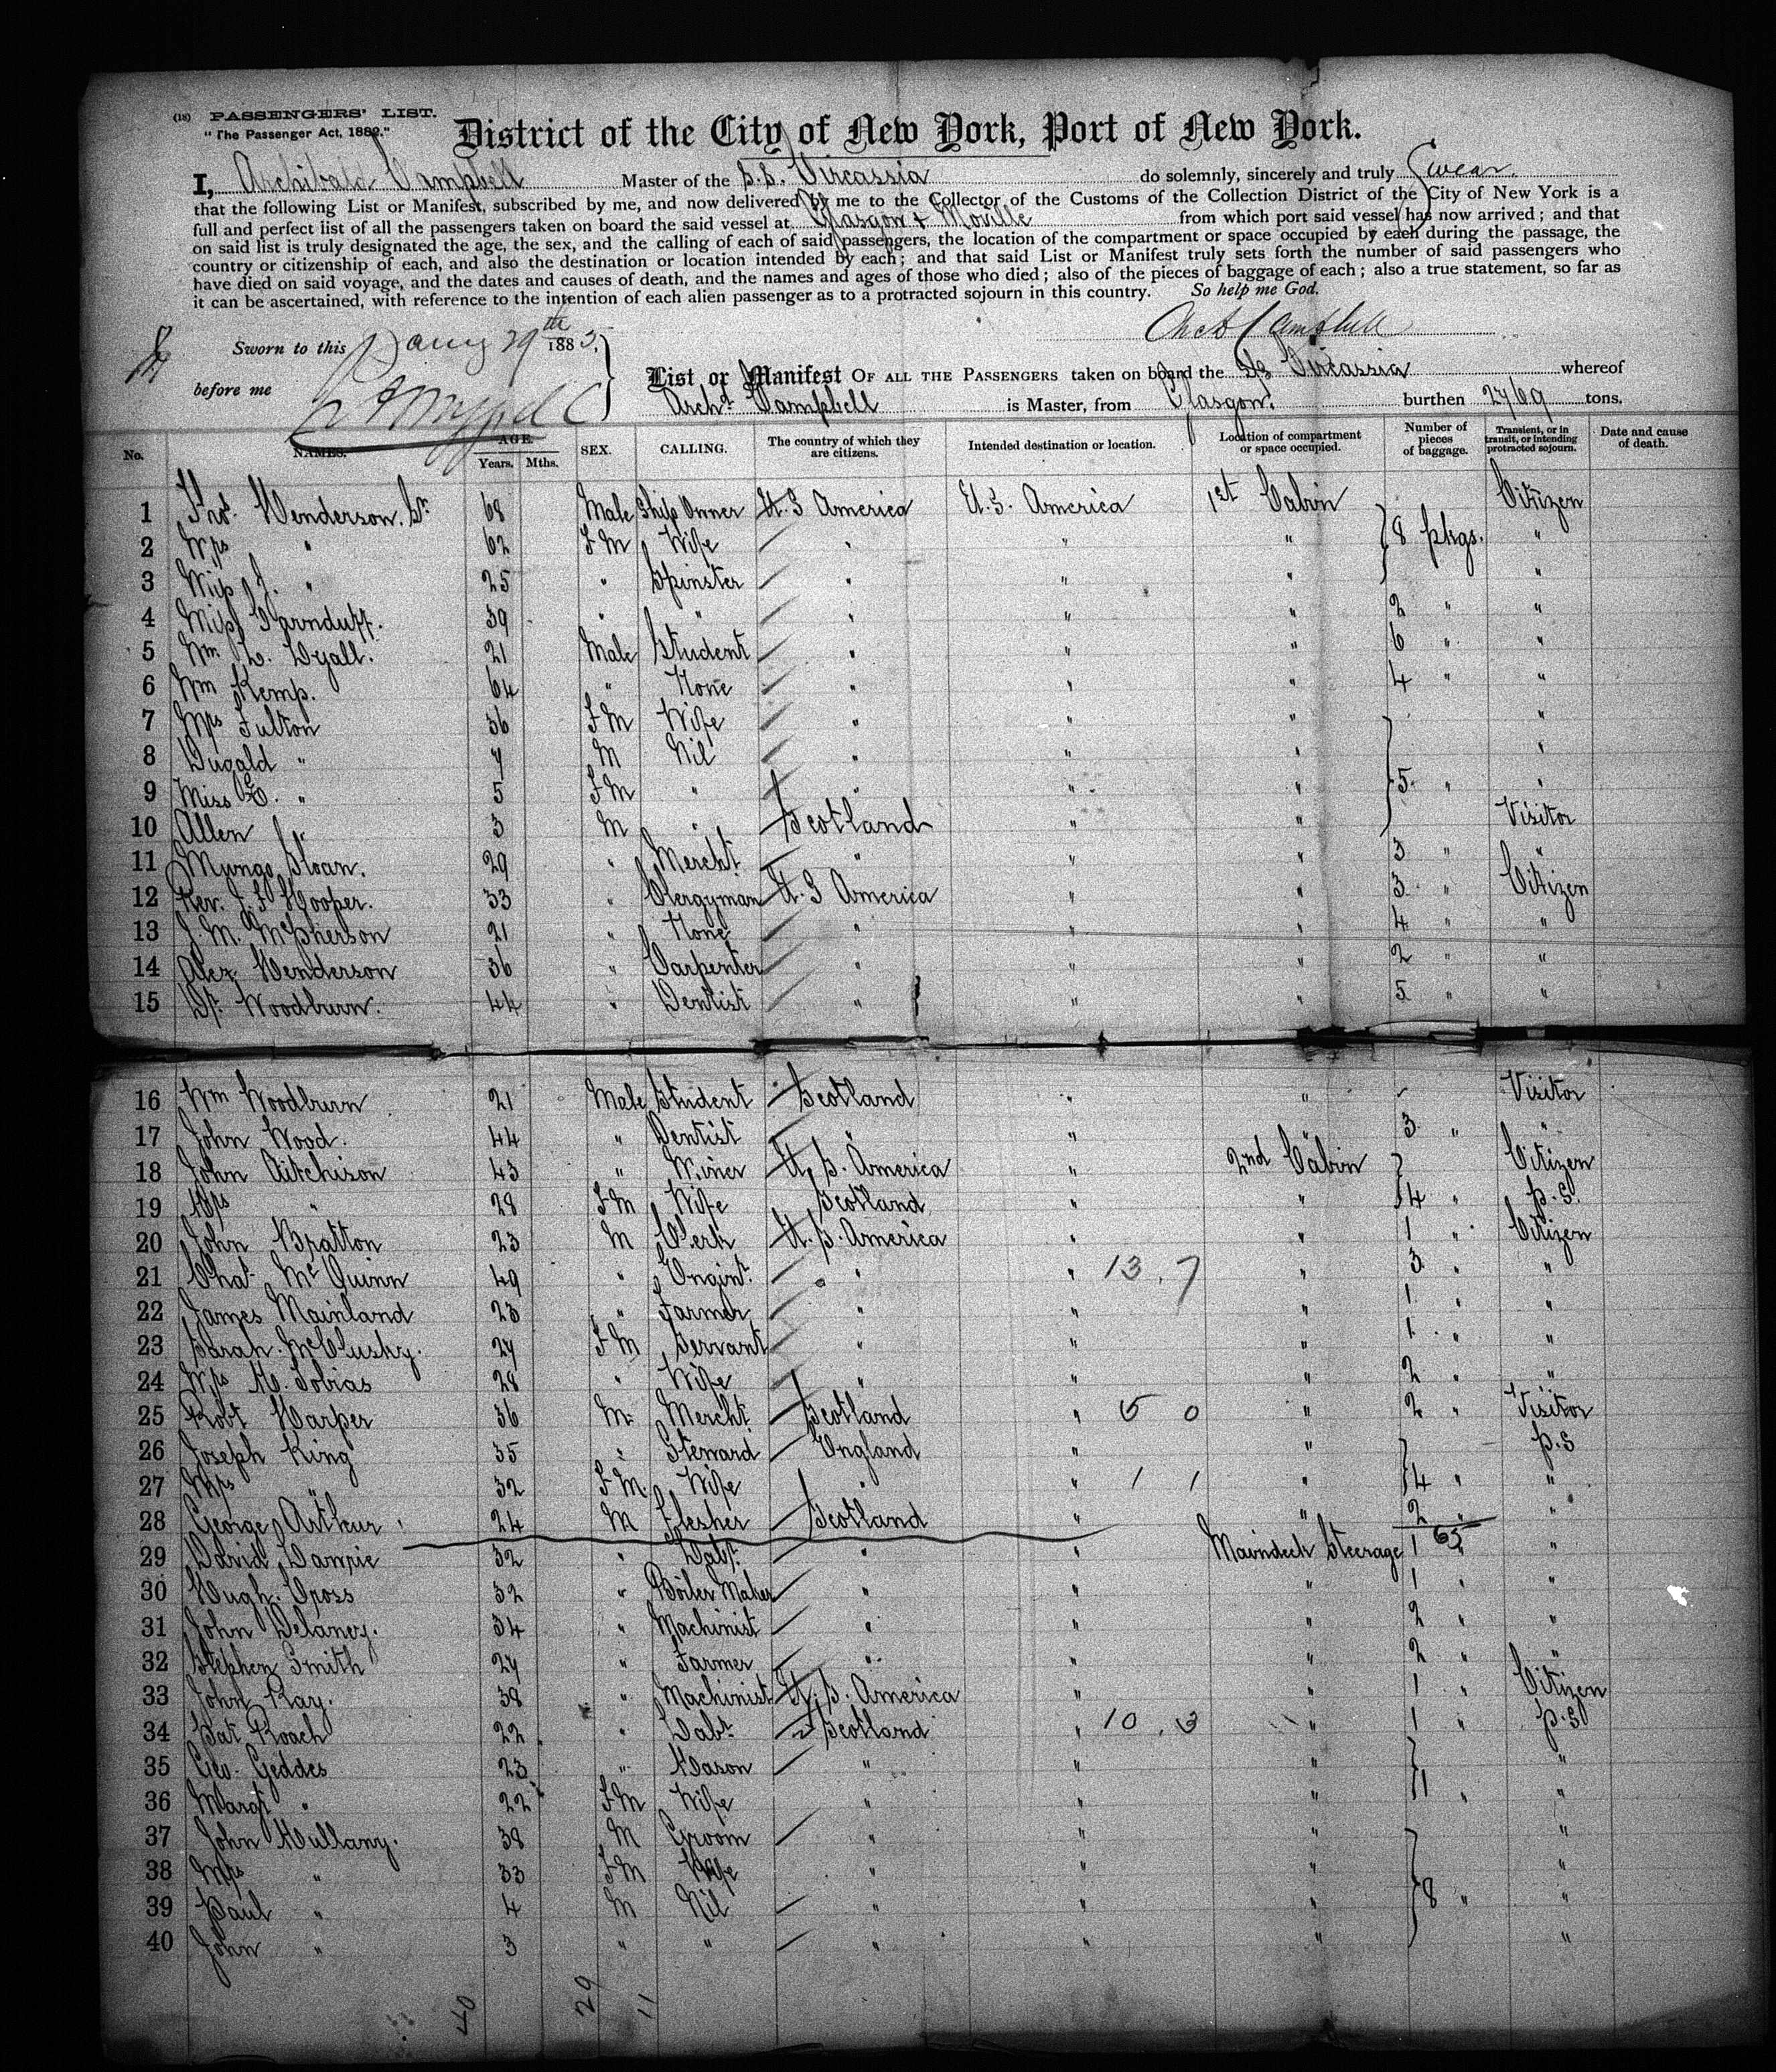 (18) PASSENGERS' LIST.
"The Passenger Act, 1882."
District of the City of New York, Port of New York.
I, Archibald Campbell Master of the S.S. Circassia do solemnly, sincerely and truly Swear
that the following List or Manifest, subscribed by me, and now delivered by me to the Collector of the Customs of the Collection District of the City of New York is a
full and perfect list of all the passengers taken on board the said vessel at Glasgow & Moville from which port said vessel has now arrived; and that
on said list is truly designated the age, the sex, and the calling of each of said passengers, the location of the compartment or space occupied by each during the passage, the
country or citizenship of each, and also the destination or location intended by each; and that said List or Manifest truly sets forth the number of said passengers who
have died on said voyage, and the dates and causes of death, and the names and ages of those who died; also of the pieces of baggage of each; also a true statement, so far as
it can be ascertained, with reference to the intention of each alien passenger as to a protracted sojourn in this country. So help me God.
Archd Campbell
Sworn to this Jany 29th 1885,
before me
List or Manifest OF ALL THE PASSENGERS taken on board the SS Circassia whereof
Archd. Campbell is Master, from Glasgow. burthen 2769 tons.
No. NAMES. AGE. Years. Mths. SEX. CALLING. The country of which they are citizens. Intended destination or location. Location of compartment or space occupied. Number of pieces of baggage. Transient, or in transit, or intending protracted sojourn. Date and cause of death.
1 Jno. Henderson. Sr 68 Male Ship Owner U.S America U.S. America 1st Cabin Citizen
2 Mrs " 62 F M Wife " " " 8 pkgs. "
3 Miss J. " 25 " Spinster " " " "
4 Miss Carnduff. 39 " " " " " 2 " "
5 Wm L. Lyall. 21 Male Student " " " 6 " "
6 Wm Kemp. 64 " None " " " 4 " "
7 Mrs Fulton 36 F M Wife " " " "
8 Dugald " 7 M Nil " " " "
9 Miss E. " 5 F M " " " " 5 " "
10 Allen " 3 M " Scotland " " Visitor
11 Mungo Sloan. 29 " Mercht " " " 3 " "
12 Rev. J. F Hooper. 33 " Clergyman U.S America " " 3 " Citizen
13 J. M. McPherson 21 " None " " " 4 " "
14 Alex Henderson 36 " Carpenter " " " 2 " "
15 Dr. Woodburn. 44 " Dentist " " " 5 " "
16 Wm Woodburn 21 Male Student Scotland " " Visitor
17 John Wood. 44 " Dentist " " " 3 " "
18 John Aitchison 43 " Miner U.S. America " 2nd Cabin Citizen
19 Mrs " 28 F M Wife Scotland " " 4 " p.S.
20 John Bratton 23 M Clerk U.S. America " " 1 " Citizen
21 Chas. McQuinn 49 " Engint. " " 13 . 7 " 3 " "
22 James Mainland 23 " Farmer " " " 1 " "
23 Sarah McClusky. 27 F M Servant " " " 1 " "
24 Mrs M. Tobias 28 " Wife " " " 2 " "
25 Robt Harper 36 M. Mercht Scotland " 5 0 " 2 " Visitor
26 Joseph King 35 " Steward England " " p.S
27 Mrs " 32 F M. Wife " " 1 1 " 4 " "
28 George Arthur 24 M Flesher Scotland " " 2 " "
65
29 David 32 " Labr. " " Maindeck Steerage 1 " "
30 Hugh Cross 32 " Boiler Maker " " " 1 " "
31 John Delaney. 34 " Machinist " " " 2 " "
32 Stephen Smith 27 " Farmer " " " 2 " "
33 John Ray. 38 " Machinist U.S. America " " 1 " Citizen
34 Pat Roach 22 " Labr. Scotland " 10 . 3 " 1 " p.S
35 Geo. Geddes 23 " Mason " " " "
36 Margt " 22 F M Wife " " " 1 " "
37 John Mullany. 38 M Groom " " " "
38 Mrs " 33 F M Wife " " " "
39 Paul " 4 M Nil " " " 8 " "
40 John " 3 " " " " " "
40 29 11